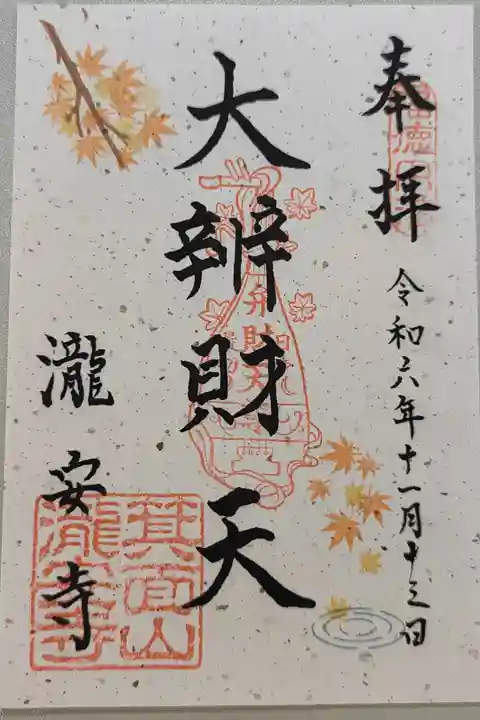 奉拝
令和六年十一月十三日
大辨財天
弁財天
瀧安寺
箕面山
瀧安寺